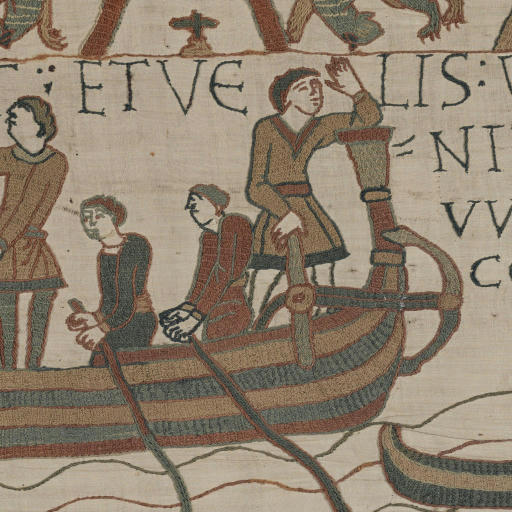 ET VE LIS: V
NI
VV
C